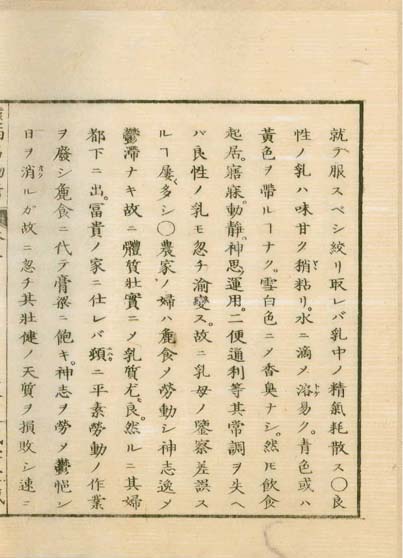 就テ服スベシ絞リ取レバ乳中ノ精氣耗散ス〇良
性ノ乳ハ味甘ク稍粘リ。水ニ滴メ溶易ク。青色或ハ
黃色ヲ帶ルヿナク。雪白色ニメ香臭ナシ。然𪜈飲食
起居。寤寐。動静。神思。運用。二便通利等其常調ヲ失ヘ
バ良性ノ乳モ忽チ渝變ス。故ニ乳母ノ鑒察差誤ス
ルヿ屢多シ〇農家ノ婦ハ麁食メ勞動シ神志逸メ
鬱滯ナキ故ニ體質壯實ニメ乳質尤良。然ルニ其婦
都下ニ出。冨貴ノ家ニ仕レバ頓ニ平素勞動ノ作業
ヲ廢シ麁食ニ代テ膏粱ニ飽キ。神志ヲ勞メ鬱悒シ
日ヲ消ルガ故ニ忽チ其壯健ノ天質ヲ損敗シ速ニ